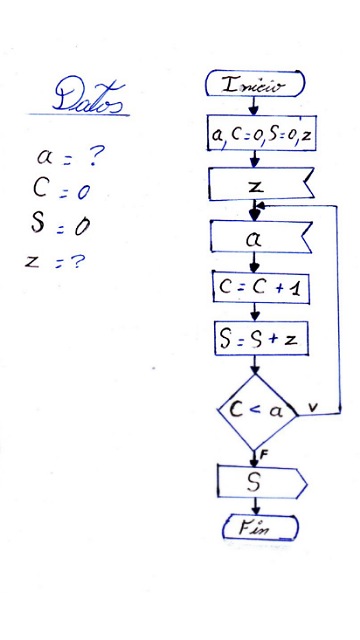 Datos
a = ?
C = 0
S = 0
z = ?
Inicio
a, C=0, S=0, z
z
a
C = C + 1
S = S + z
C < a
V
F
S
Fin